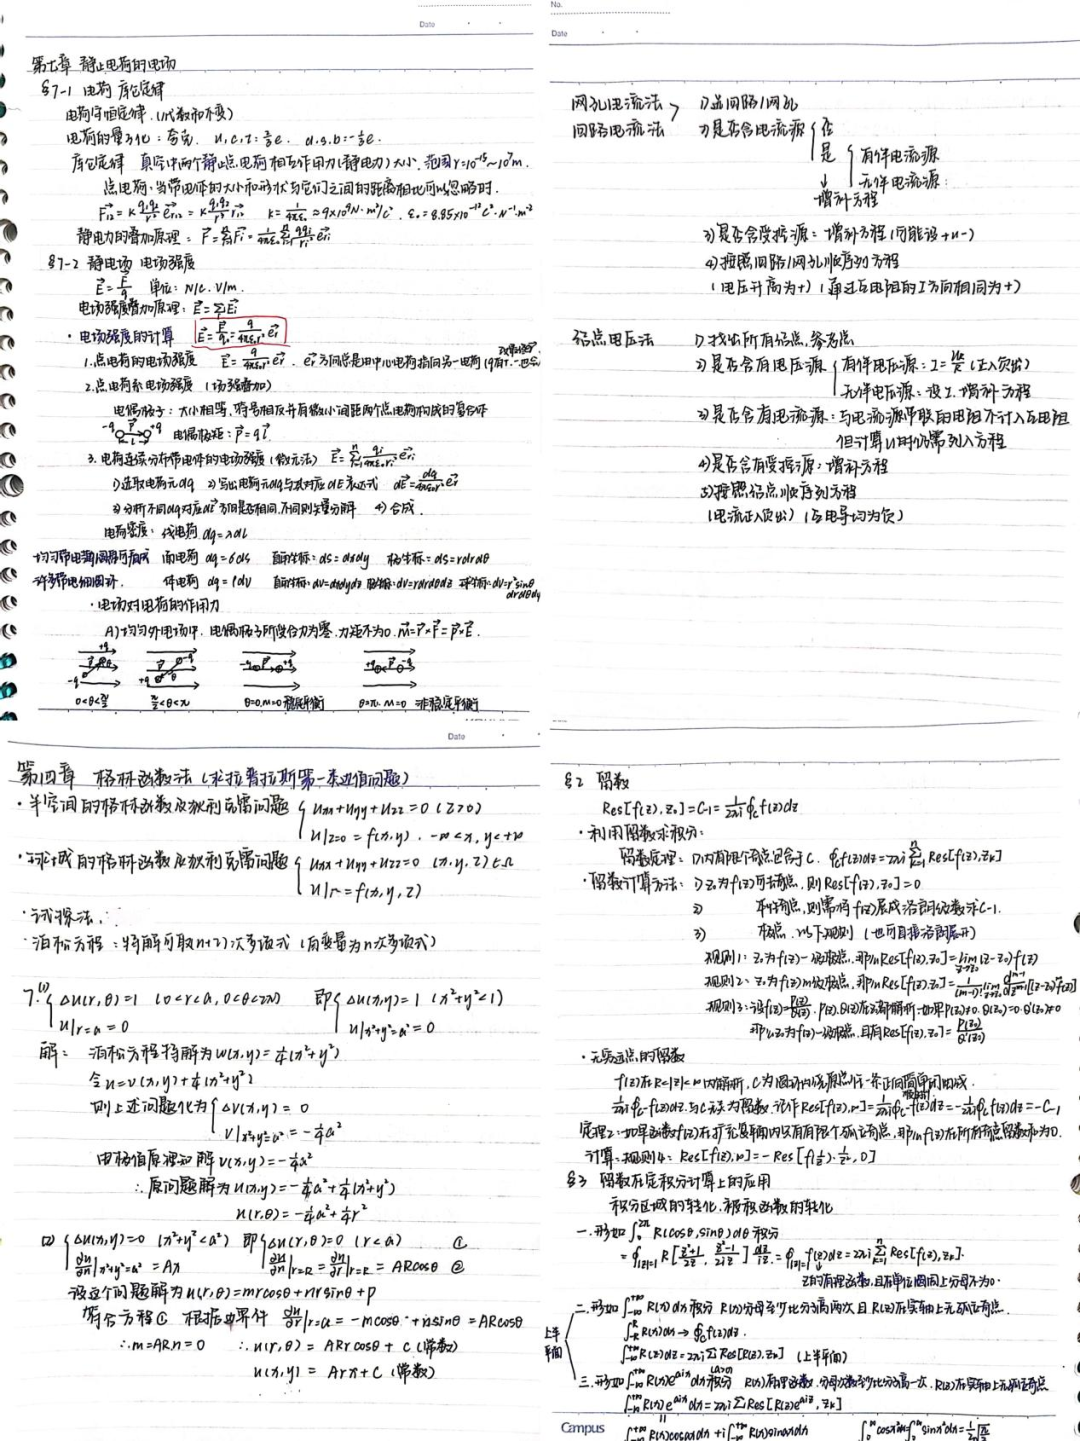 Date
第七章 静止电荷的电场
§7-1 电荷 库仑定律
电荷守恒定律.(代数和不变)
电荷的量子化：夸克. u,c,t: 2/3e. d,s,b: -1/3e.
库仑定律 真空中两个静止点电荷相互作用力(静电力)大小. 范围r=10⁻¹⁵~10⁷m.
点电荷:当带电体的大小和形状与它们之间的距离相比可以忽略时.
F₁₂=k q₁q₂/r² e₁₂=k q₁q₂/r³ r₁₂ k=1/4πε₀≈9×10⁹N·m²/c² ε₀=8.85×10⁻¹²c²·N⁻¹·m⁻²
静电力的叠加原理：
§7-2 静电场 电场强度
E=F/q 单位: N/c. V/m.
电场强度叠加原理: E=ΣEi
·电场强度的计算 E=F/q₀=q/4πε₀r² er
1.点电荷的电场强度 E=q/4πε₀r² er. er方向总是由中心电荷指向另一电荷
2.点电荷系电场强度 (场强叠加)
电偶极子：大小相等,符号相反并有微小间距两个点电荷构成的复合体
-q +q 电偶极矩: p=ql
3.电荷连续分布带电体的电场强度(微元法)
1)选取电荷元dq 2)写出电荷元dq与其对应dE表达式 dE=dq/4πε₀r² er
3)分析不同dq对应dE方向是否相同,不同则矢量分解 4)合成.
电荷密度：线电荷 dq=λdl
面电荷 dq=σds 直角坐标: ds=dxdy 极坐标: ds=rdrdθ
体电荷 dq=ρdv 直角坐标: dv=dxdydz 柱坐标: dv=rdrdθdz 球坐标: dv=r²sinθ
drdθdφ
·电场对电荷的作用力
A)均匀外电场中. 电偶极子所受合力为零.力矩不为0. M=r×F=p×E.
0<θ<π/2 π/2<θ<π θ=0.M=0 稳定平衡 θ=π. M=0 非稳定平衡
No.
Date
网孔电流法 1)选回路/网孔
回路电流法 2)是否含电流源 否
是 有伴电流源
无伴电流源:
增补方程
3)是否含受控源：增补方程(可能设+u-)
4)按照回路/网孔顺序列方程
(电压升高为+) (通过互电阻的I方向相同为+)
结点电压法 1)找出所有结点,参考点
2)是否含有电压源 有伴电压源：I=Us/R(正入负出)
无伴电压源：设I.增补方程
3)是否含有电流源：与电流源串联的电阻不计入互电阻
但计算u时仍需列入方程
4)是否含有受控源：增补方程
5)按照结点顺序列方程
(电流正入负出) (互电导均为负)
Date
第四章 格林函数法(求拉普拉斯第一类边值问题)
·半空间的格林函数及狄利克雷问题 uxx+uyy+uzz=0 (z>0)
u|z=0=f(x,y). -∞<x,y<+∞
·球域的格林函数及狄利克雷问题 uxx+uyy+uzz=0 (x,y,z)∈Ω
u|Γ=f(x,y,z)
·试探法.
·泊松方程：特解可取(n+2)次多项式(自变量为n次多项式)
7.(1) Δu(r,θ)=1 (0<r<a,0<θ<2π) 即 Δu(x,y)=1 (x²+y²<1)
u|r=a=0 u|x²+y²=a²=0
解： 泊松方程特解为w(x,y)=1/4(x²+y²)
令u=v(x,y)+1/4(x²+y²)
则上述问题化为 Δv(x,y)=0
v|x²+y²=a²=-1/4a²
由极值原理知解v(x,y)=-1/4a²
∴原问题解为u(x,y)=-1/4a²+1/4(x²+y²)
u(r,θ)=-1/4a²+1/4r²
(2) Δu(x,y)=0 (x²+y²<a²) 即 Δu(r,θ)=0 (r<a) ①
∂u/∂n|x²+y²=a²=Ax ∂u/∂n|r=R=∂u/∂r|r=R=ARcosθ ②
设这个问题解为u(r,θ)=mrcosθ+nrsinθ+p
符合方程①. 根据边界件 ∂u/∂r|r=a=-mcosθ+nsinθ=ARcosθ
∴m=AR n=0 ∴u(r,θ)=ARrcosθ+C(常数)
u(x,y)=Arx+C(常数)
§2 留数
Res[f(z),z₀]=C₋₁=1/2πi∮c f(z)dz
·利用留数求积分：
留数定理：D内有限个奇点包含于C. ∮c f(z)dz=2πiΣRes[f(z),zk]
·留数计算方法：1)z₀为f(z)可去奇点,则Res[f(z),z₀]=0
2) 本性奇点,则需将f(z)展成洛朗级数求C₋₁.
3) 极点.以下规则(也可直接洛朗展开)
规则1：z₀为f(z)一级极点.那么Res[f(z),z₀]=lim(z-z₀)f(z)
规则2：z₀为f(z)m级极点,那么Res[f(z),z₀]=1/(m-1)! lim dᵐ⁻¹/dzᵐ⁻¹[(z-z₀)ᵐf(z)]
规则3：设f(z)=P(z)/Q(z). P(z).Q(z)在z₀都解析.如果P(z₀)≠0.Q(z₀)=0.Q'(z₀)≠0
那么z₀为f(z)一级极点,且有Res[f(z),z₀]=P(z₀)/Q'(z₀)
·无穷远点的留数
f(z)在R<|z|<∞内解析,C为圆环内绕原点任一条正向简单闭曲线.
定理2：如果函数f(z)在扩充复平面内只有有限个孤立奇点,那么f(z)在所有奇点留数和为0.
计算：规则4：Res[f(z),∞]=-Res[f(1/z)·1/z²,0]
§3 留数在定积分计算上的应用
积分区域的转化.被积函数的转化
一.形如∫₀²π R(cosθ,sinθ)dθ积分
=∮|z|=1 R[z²+1/2z, z²-1/2iz]dz/iz=∮|z|=1 f(z)dz=2πiΣRes[f(z),zk].
z的有理函数,且在单位圆周上分母不为0.
二.形如∫R(x)dx积分 R(x)分母至少比分子高两次且R(z)在实轴上无孤立奇点.
∫R(x)dx→∮c f(z)dz.
上半平面
∫R(z)dz=2πiΣRes[R(z),zk] (上半平面)
三.形如∫R(x)eᵃⁱˣdx积分(a>0) R(x)有理函数.分母次数至少比分子高一次.R(z)在实轴上无孤立奇点
∫R(x)eᵃⁱˣdx=2πiΣRes[R(z)eᵃⁱᶻ,zk]
Campus
∫R(x)cosaxdx+i∫R(x)sinaxdx